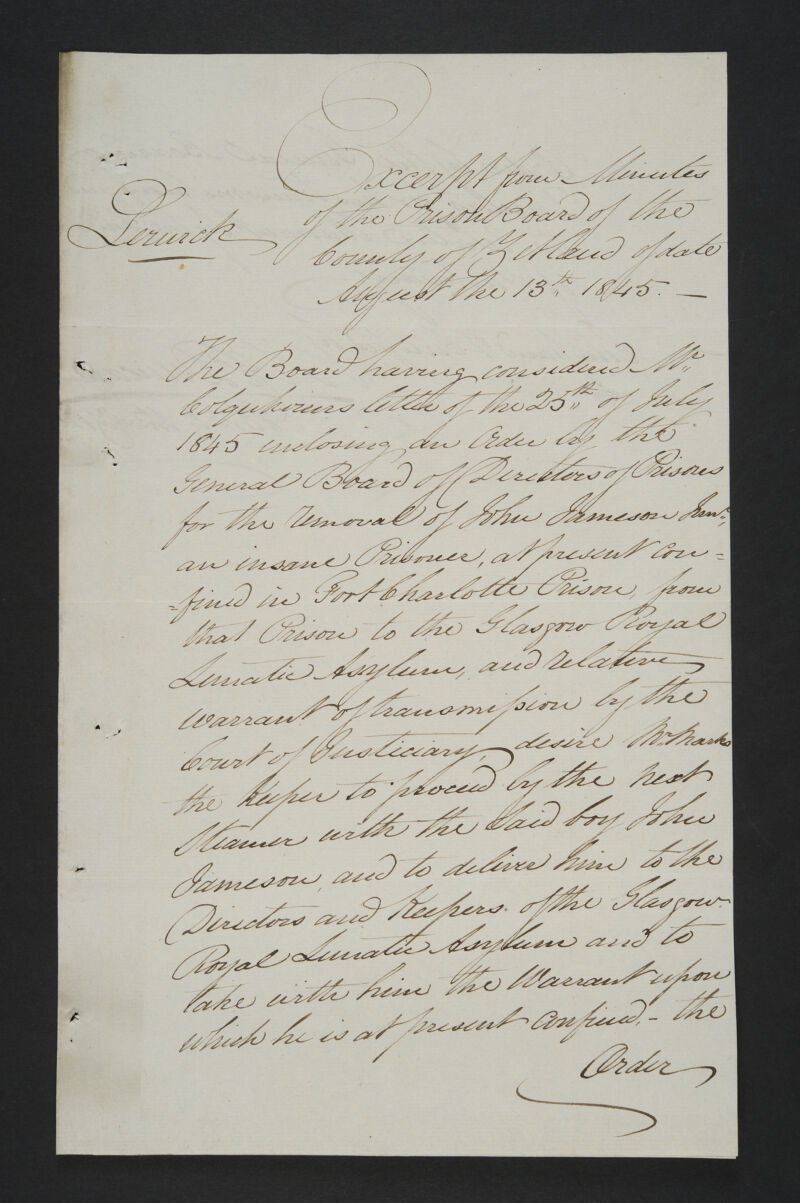 Excerpt from Minutes
of the Prison Board of the
Lerwick
County of Zetland of date
August the 13th 1845. —
The Board having considered Mr.
Colquhouns letter of the 25th of July
1845 enclosing an Order by the
General Board of Directors of Prisons
for the removal of John Jameson Junr.,
an insane Prisoner, at present con=
=fined in Fort Charlotte Prison, from
that Prison to the Glasgow Royal
Lunatic Asylum, and relative
warrant of transmission by the
Court of Justiciary, desire Mr. Marks
the Keeper to proceed by the next
Steamer with the said boy John
Jameson, and to deliver him to the
Directors and Keepers of the Glasgow
Royal Lunatic Asylum and to
take with him the Warrant upon
which he is at present confined, – the
Order